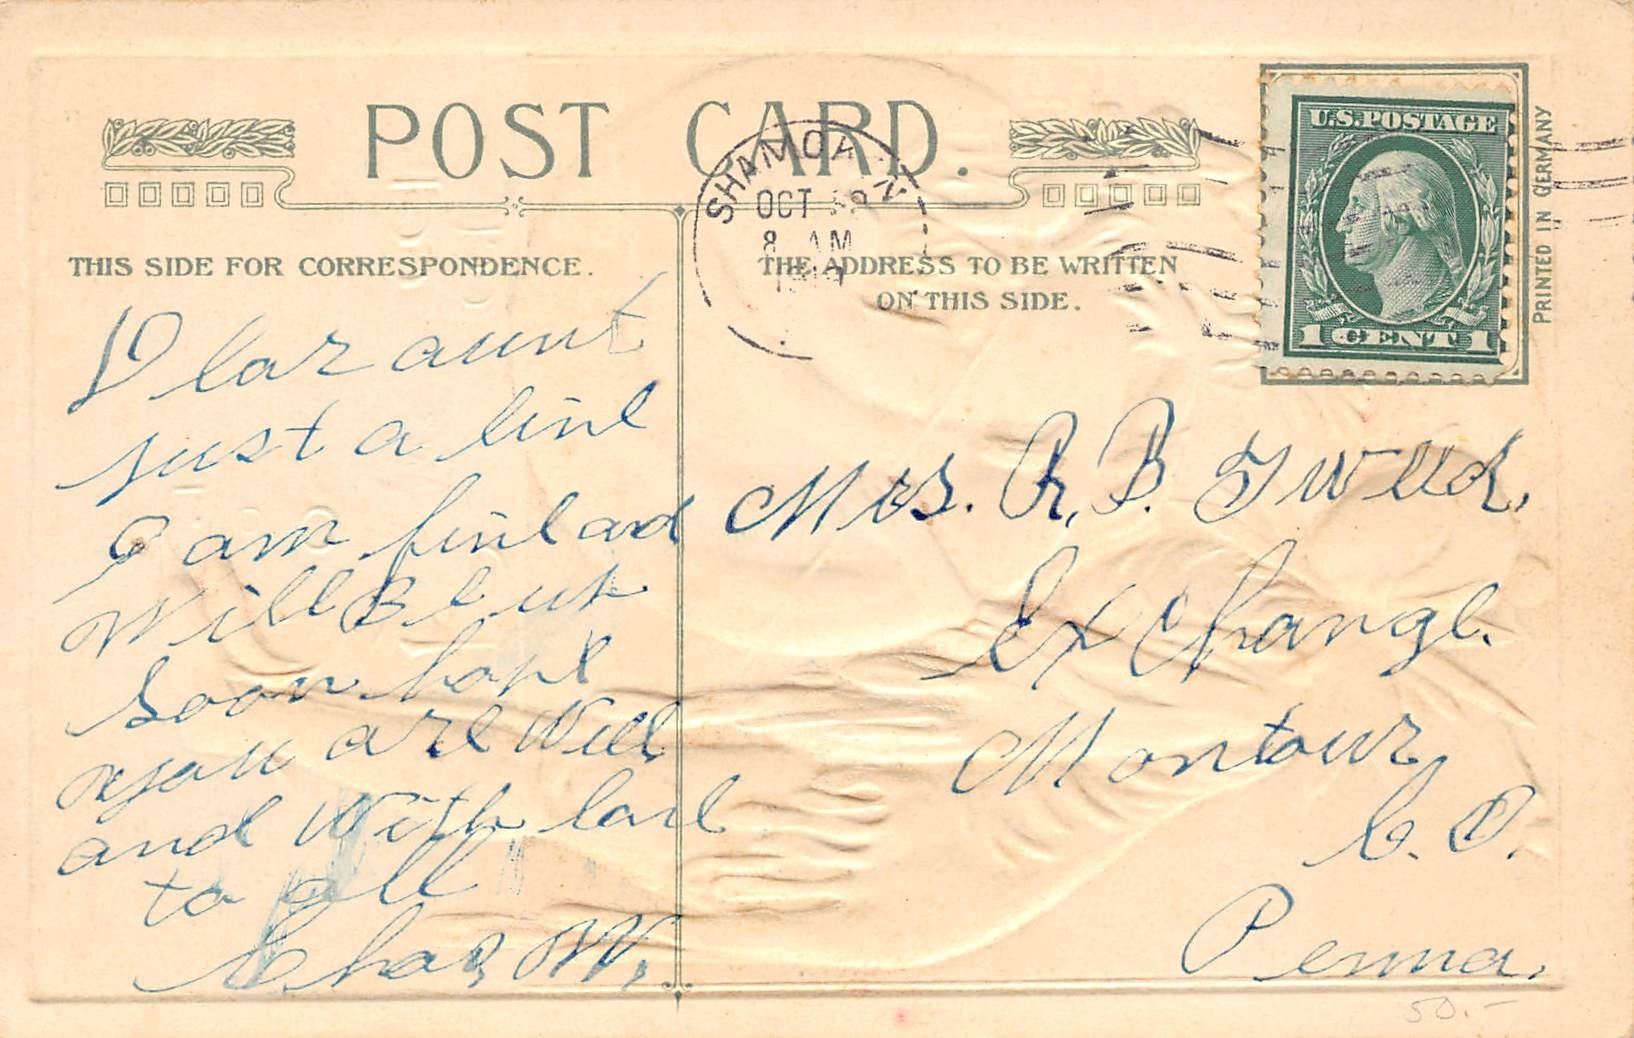 POST CARD.
SHAMOKIN
OCT
8 AM
THIS SIDE FOR CORRESPONDENCE.
THE ADDRESS TO BE WRITTEN
ON THIS SIDE.
U.S. POSTAGE
1 CENT 1
PRINTED IN GERMANY
Dear aunt
just a line
I am fine and
Will B
soon hope
you are Well
and With
to all
Chas, W.
Mrs. R. B.
Exchange.
Montour
C. O.
Penna.
50.-